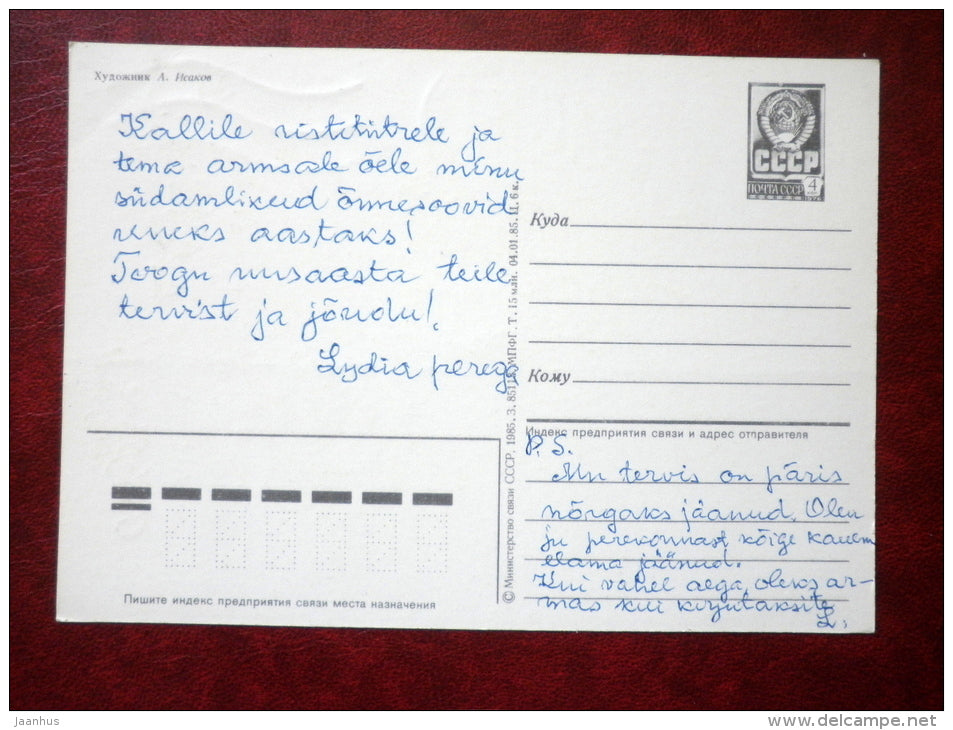 Художник А. Исаков
Kallile ristitütrele ja
tema armsale õele minu
südamlikud õnnesoovid
uueks aastaks!
Toogu uusaasta teile
tervist ja jõudu!
Lydia perega
СССР
ПОЧТА СССР 4
Куда
Кому
© Министерство связи СССР, 1985. З. 85118. МПФГ. Т. 15 млн. 04.01.85. Ц. 6 к.
Индекс предприятия связи и адрес отправителя
P. S.
Mu tervis on päris
nõrgaks jäänud. Olen
ju perekonnast kõige kauem
elama jäänud.
Kui vahel aega, oleks ar-
mas kui kirjutaksite
L.
Пишите индекс предприятия связи места назначения
Jaanhaus
www.delcampe.net